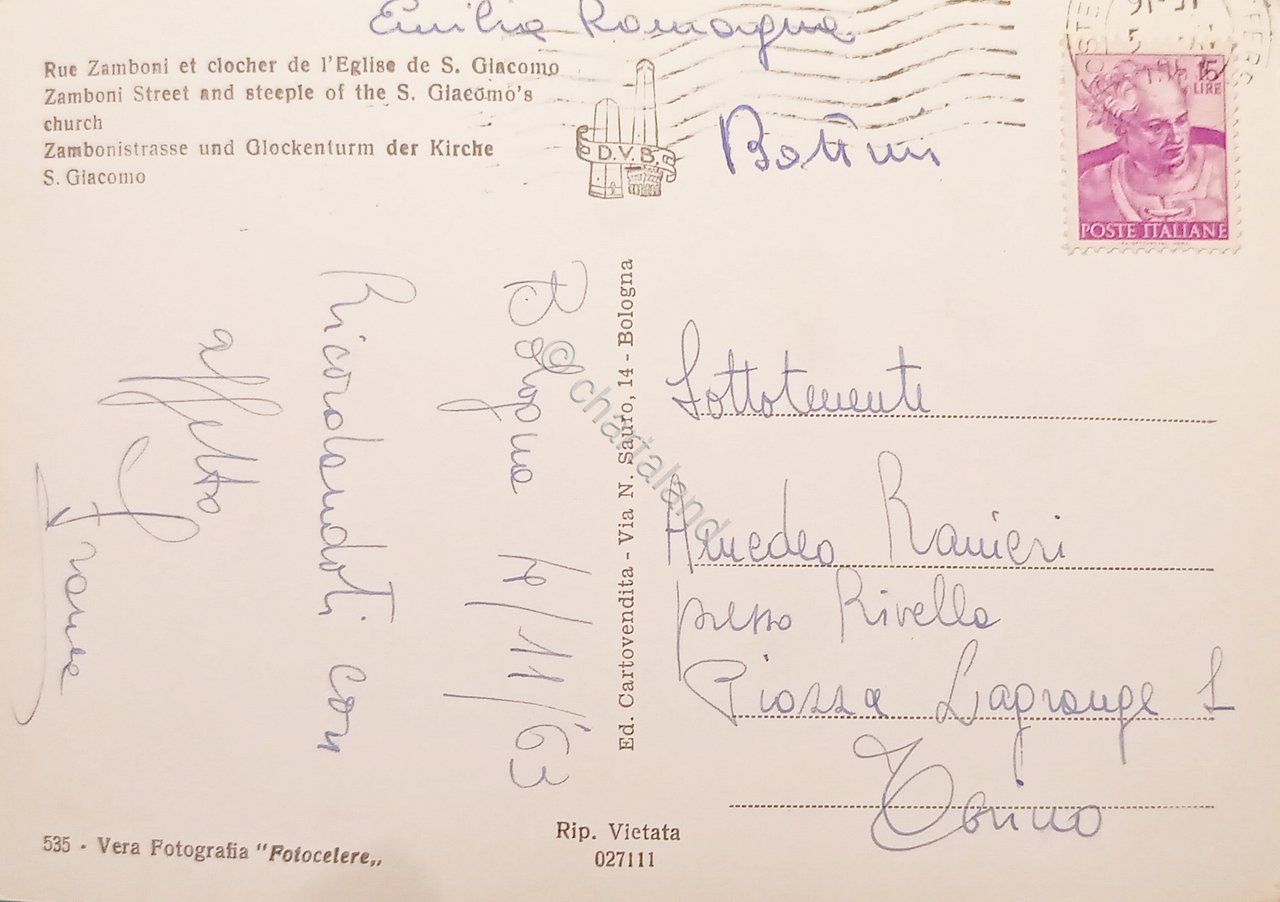 Emilia Romagna
Rue Zamboni et clocher de l'Eglise de S. Giacomo
Zamboni Street and steeple of the S. Giacomo's
church
Zambonistrasse und Glockenturm der Kirche
S. Giacomo
D.V.B.
15
LIRE
POSTE ITALIANE
Bologna 4/11/'63
Ricordandoti con
affetto
Ed. Cartovendita - Via N. Sauro, 14 - Bologna
© chartaland
Sottotenente
Amedeo Ranieri
presso Rivella
Piazza Lagrange 1
Torino
535 - Vera Fotografia "Fotocelere„
Rip. Vietata
027111